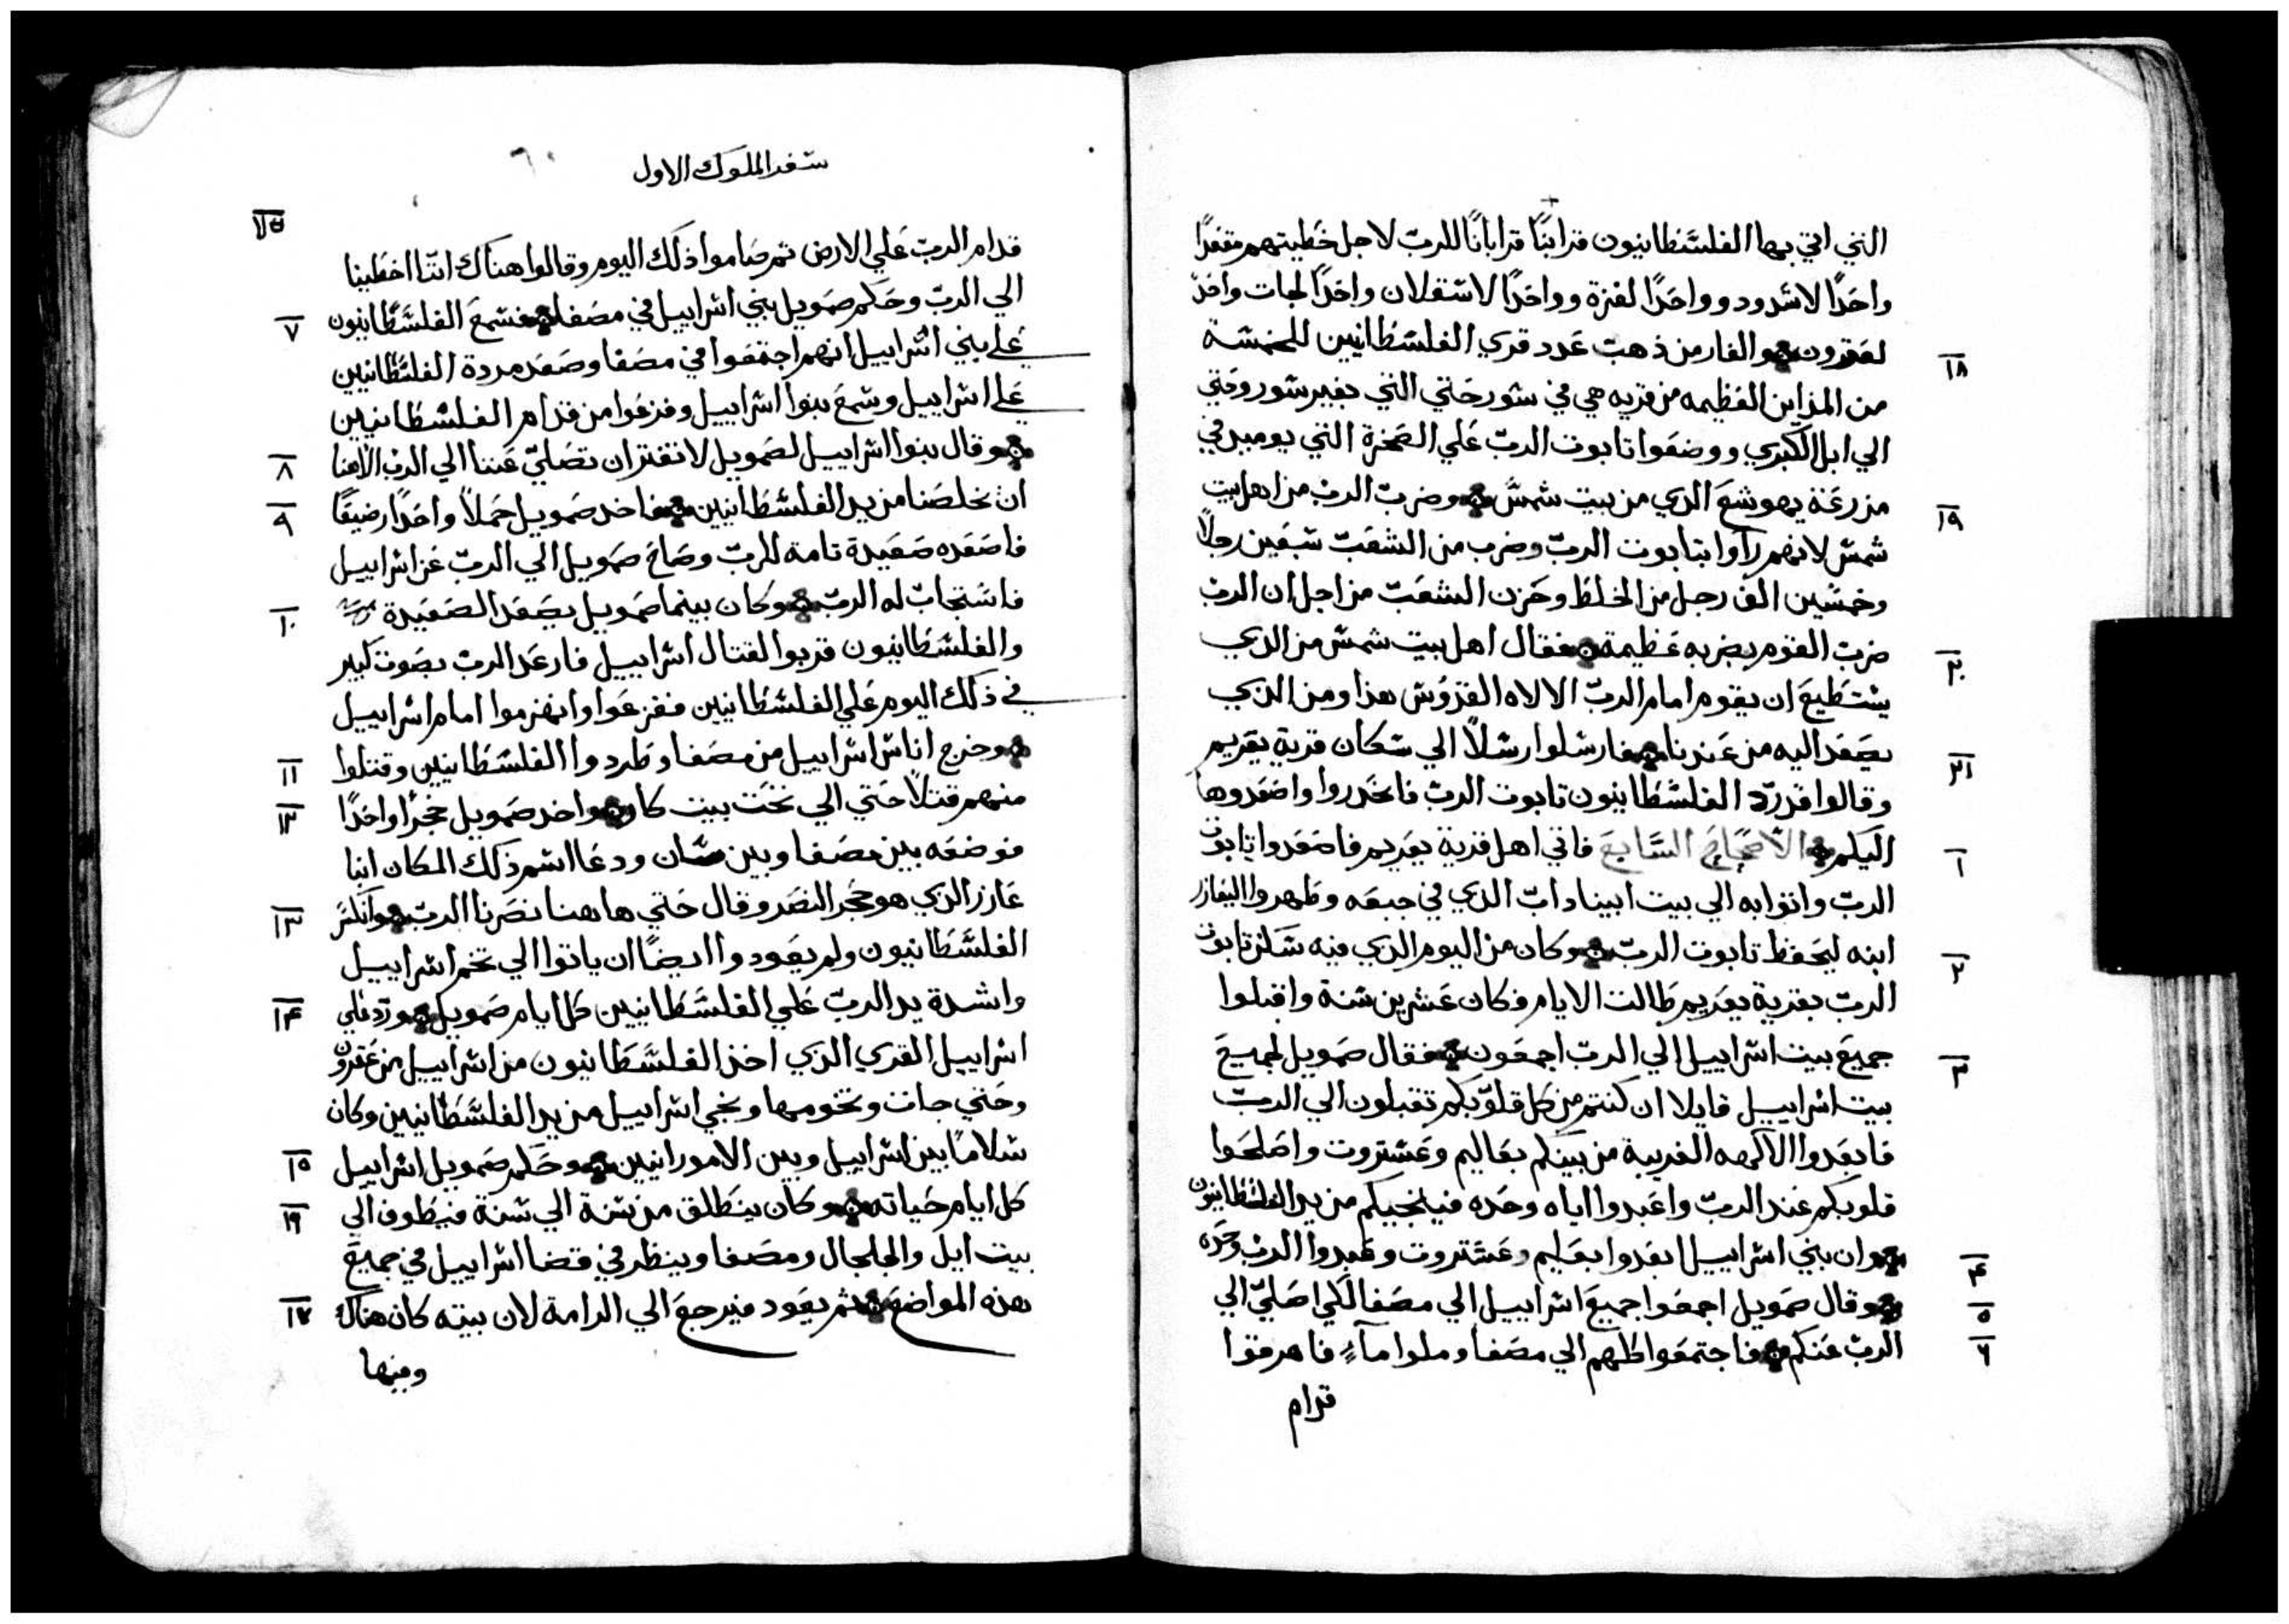 التي اتي بها الفلسطانيون قرابنًا قرابانًا للربّ لاجل خطيتهم مقعدًا
واحدًا لاشدود وواحدًا لغزة وواحدًا لاسقلان واحدًا لجات واحدًا
لعقرون والفار من ذهب عدد قري الفلسطانيين للخمسة
١٨
من المداين العظيمه من قريه هي في سور حتي التي بغير سور وحتي
الي ابل الكبري ووضعوا تابوت الربّ علي الصخرة التي يوميد في
مزرعة يهوشع الدي من بيت شمس وضرب الربّ من اهل بيت
١٩
شمس لانهم رآوا بتابوت الربّ وضرب من الشعب سبعين رجلًا
وخمسين الف رجل من الخلط وحزن الشعب من اجل ان الربّ
ضرب القوم بضربه عظيمة فقال اهل بيت شمس من الدي
٢٠
يستطيع ان يقوم امام الربّ الالاه القدوس هذا ومن الدي
يصعد اليه من عندنا فارسلوا رسلًا الي سكان قرية يقريم
٢١
وقالوا قد ردّ الفلسطانيون تابوت الربّ فانحدروا واصعدوها
اليكم الاصحاح السابع فاتي اهل قرية يعريم فاصعدوا تابوت
١
الربّ واتوا به الي بيت ابيناداب الذي في جبعه وطهروا اليعازر
ابنه ليحفظ تابوت الربّ وكان من اليوم الذي فيه سكن تابوت
٢
الربّ بقرية يعريم طالت الايام فكان عشرين سنة واقبلوا
جميع بيت اسراييل الي الربّ اجمعون فقال صمويل لجميع
٣
بيت اسراييل قايلا ان كنتم من كل قلوبكم تقبلون الي الربّ
فابعدوا الالهه الغريبة من بينكم بعاليم وعشتروت واصلحوا
قلوبكم عند الربّ واعبدوا اياه وحده فينجيكم من يد الفلسطانيون
وان بني اسراييل ابعدوا بعليم وعشتروت وعبدوا الربّ وحده
٤
وقال صمويل اجمعوا جميع اسراييل الي مصفا لكي اصليّ الي
٥
الربّ عنكم فاجتمعوا كلهم الي مصفا وملوا مآءٍ فاهرقوا
٦
قدام
سفر الملوك الاول
٦٠
قدام الربّ علي الارض ثم صاموا ذلك اليوم وقالوا هناك اننا اخطينا
الي الربّ وحكم صمويل بني اسراييل في مصفا فسمع الفلسطانيون
٧
علي بني اسراييل انهم اجتمعوا في مصفا وصعد مردة الفلسطانيين
علي اسراييل وسمع بنوا اسراييل وفزعوا من قدام الفلسطانيين
وقال بنوا اسراييل لصمويل لا تفتر ان تصليّ عننا الي الربّ الاهنا
٨
ان يخلصنا من يد الفلسطانيين فاخد صمويل حملًا واحدًا رضيعًا
٩
فاصعده صعيدة تامة للربّ وصاح صمويل الي الربّ عن اسراييل
فاستجاب له الربّ وكان بينما صمويل يصعد الصعيدة
١٠
والفلسطانيون قربوا لقتال اسراييل فارعد الربّ بصوت كبير
في ذلك اليوم علي الفلسطانيين ففزعوا وانهزموا امام اسراييل
وخرج اناس اسراييل من مصفا وطردوا الفلسطانيين وقتلوا
١١
منهم قتلًا حتي الي تحت بيت كار واخد صمويل حجرًا واحدًا
١٢
فوضعه بين مصفا وبين سان ودعا اسم ذلك المكان ابنا
عازر الذي هو حجر النصر وقال حتي هاهنا نصرنا الربّ وانكسر
١٣
الفلسطانيون ولم يعودوا ايضًا ان ياتوا الي تخم اسراييل
واشدة يد الربّ علي الفلسطانيين كل ايام صمويل وردّ علي
١٤
اسراييل القري الذي اخذ الفلسطانيون من اسراييل من عقرون
وحتي جات وتخومها ونجي اسراييل من يد الفلسطانيين وكان
سلامًا بين اسراييل وبين الامورانيين وحكم صمويل اسراييل
١٥
كل ايام حياته وكان ينطلق من سنة الي سنة فيطوف الي
١٦
بيت ايل والجلجال ومصفا وينظر في قضا اسراييل في جميع
هذه المواضع ثم يعود فيرجع الي الرامة لان بيته كان هناك
١٧
وبنها